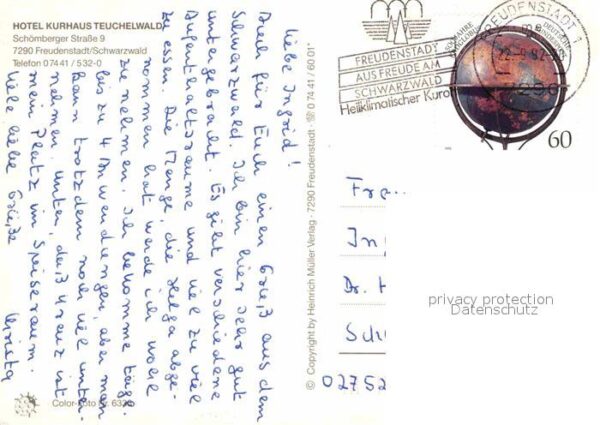 HOTEL KURHAUS TEUCHELWALD
Schömberger Straße 9
7290 Freudenstadt/Schwarzwald
Telefon 0 74 41 / 532-0
Liebe Ingrid!
Auch für Euch einen Gruß aus dem
Schwarzwald. Ich bin hier sehr gut
untergebracht. Es gibt verschiedene
Aufenthaltsräume und viel zu viel
zu essen. Die Menge, die Helga abge-
nommen hat werde ich wohl
zunehmen. Ich bekomme tägl.
bis zu 4 Anwendungen, aber man
kann trotzdem noch viel unter-
nehmen. Unten, das 4 Kreuz ist
mein Platz im Speiseraum.
Viele liebe Grüße
Christa
Color-Foto Nr.
© Copyright by Heinrich Müller Verlag · 7290 Freudenstadt · ☏ 0 74 41 / 60 01
FREUDENSTADT
AUS FREUDE AM
SCHWARZWALD
Heilklimatischer Kuror
FREUDENSTADT 1
7290
60
In
Dr. H
02752
privacy protection
Datenschutz